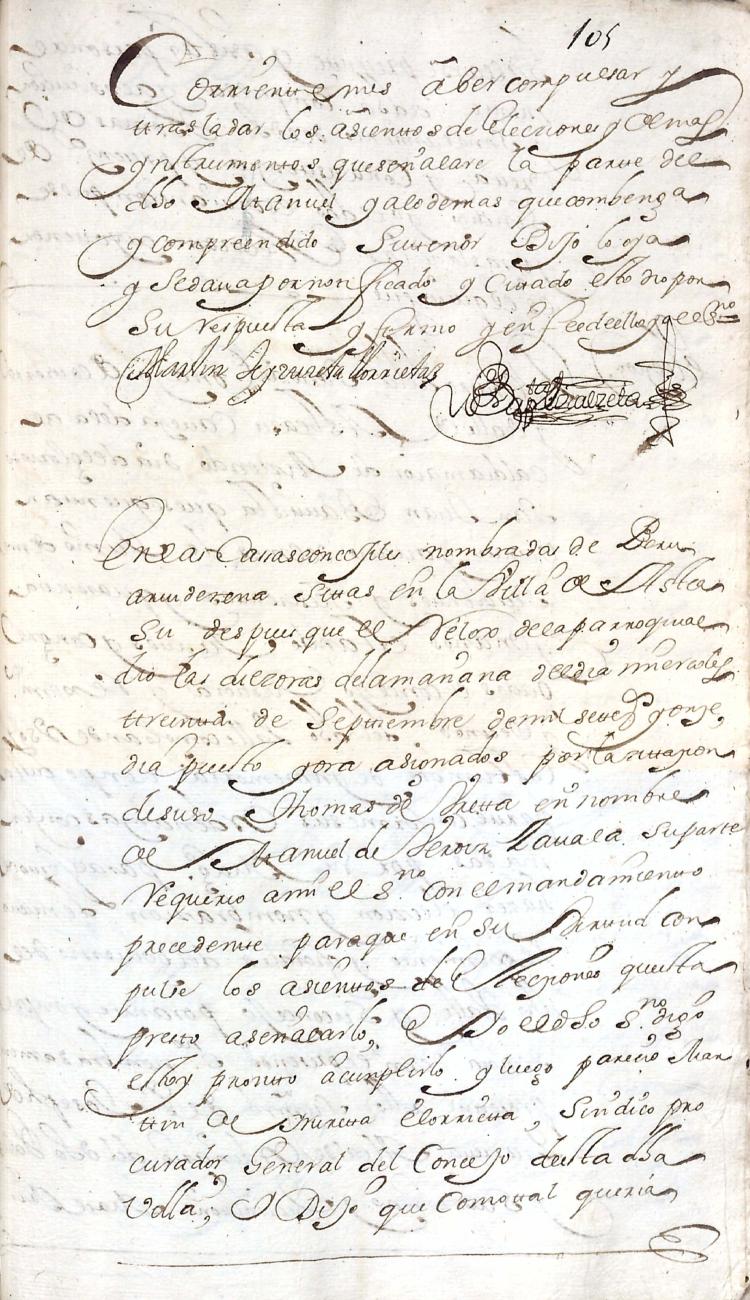 105
Corriente mes a ber compulsar y
ttrasladar los asientos de Elecziones y demas
ynstrumentos que señalare la parte del
dho Manuel y a lo demas que combenga
y compreendido su tenor Dijo lo oya
y se dava por notificado y Citado esto dio por
su respuesta y firmo y en fee de ello yo el Sno=
Martin de Yrureta Elorrieta

En las Cassas concejiles nombradas de
sitas en la Villa de Astea
su despues que el Relox de la parroquial
dio las diez oras de la mañana del dia miercoles
ttreinta de Septiembre de mil setezs y onze,
dia puesto y ora asionados por la zitazion
de suso Thomas de en nombre
de Manuel de Zavala su parte
requerio a mi el Sno con el mandamiento
precedente para que en su Virtud com
pulse los asientos de Elecziones questa
presto a señalarlos, e Yo el dho Sno digo
estoy promto a cumplirlo y luego parecio Mar
ttin de Yrureta Elorrieta, Sindico pro
curador General del Concejo desta dha
Villa, y Dijo que Como tal queria